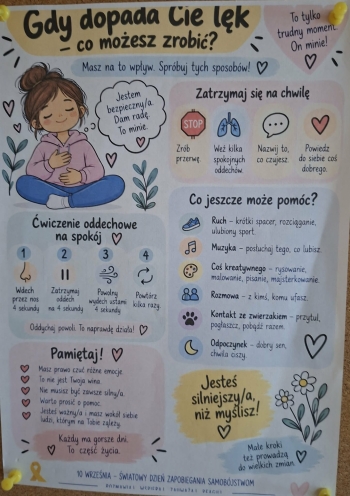 Gdy dopada Cię lęk
– co możesz zrobić?
Masz na to wpływ. Spróbuj tych sposobów!
To tylko
trudny moment.
On minie!
Jestem
bezpieczny/a.
Dam radę.
To minie.
Zatrzymaj się na chwilę
STOP
Zrób
przerwę.
Weź kilka
spokojnych
oddechów.
Nazwij to,
co czujesz.
Powiedz
do siebie coś
dobrego.
Ćwiczenie oddechowe
na spokój
1
2
3
4
Wdech
przez nos
4 sekundy
Zatrzymaj
oddech
na 4 sekundy
Powolny
wydech ustami
4 sekundy
Powtórz
kilka razy.
Oddychaj powoli. To naprawdę działa!
Co jeszcze może pomóc?
Ruch – krótki spacer, rozciąganie,
ulubiony sport.
Muzyka – posłuchaj tego, co lubisz.
Coś kreatywnego – rysowanie,
malowanie, pisanie, majsterkowanie.
Rozmowa – z kimś, komu ufasz.
Kontakt ze zwierzakiem – przytul,
pogłaszcz, pobądź razem.
Odpoczynek – dobry sen,
chwila ciszy.
Pamiętaj!
Masz prawo czuć różne emocje.
To nie jest Twoja wina.
Nie musisz być zawsze silny/a.
Warto prosić o pomoc.
Jesteś ważny/a i masz wokół siebie
ludzi, którym na Tobie zależy.
Każdy ma gorsze dni.
To część życia.
Jesteś
silniejszy/a,
niż myślisz!
Małe kroki
też prowadzą
do wielkich zmian.
10 WRZEŚNIA – ŚWIATOWY DZIEŃ ZAPOBIEGANIA SAMOBÓJSTWOM